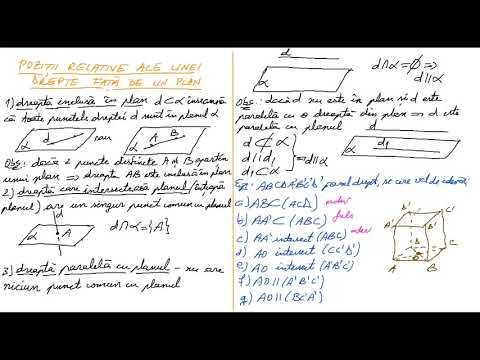 POZIȚII RELATIVE ALE UNEI
DREPTE FAȚĂ DE UN PLAN
1) dreaptă inclusă în plan d⊂α înseamnă
că toate punctele dreptei d sunt în planul α
d
α
sau
A B
α
Obs: dacă 2 puncte distincte A și B aparțin
unui plan ⇒ dreapta AB este inclusă în plan
2) dreaptă care intersectează planul (
planul) are un singur punct comun cu planul
d
A
α
d∩α={A}
3) dreaptă paralelă cu planul - nu are
niciun punct comun cu planul
d
α
d∩α=∅ ⇒
d∥α
Obs: dacă d nu este în plan și d este
paralelă cu o dreaptă din plan ⇒ d este
paralelă cu planul
d⊄α
d∥d₁
d₁⊂α
⇒ d∥α
d
d₁
α
Ex: ABCDA'B'C'D' paral drept, se cere val de adevăr
a) AB⊂(ACD) adev
b) AA'⊂(ABC) fals
c) AA' intersect (ABC) adev
d) AD intersect (CC'B')
e) AD intersect (A'B'C')
f) AD∥(A'B'C')
g) AD∥(BC'A')
D'
C'
A'
B'
D
C
A
B